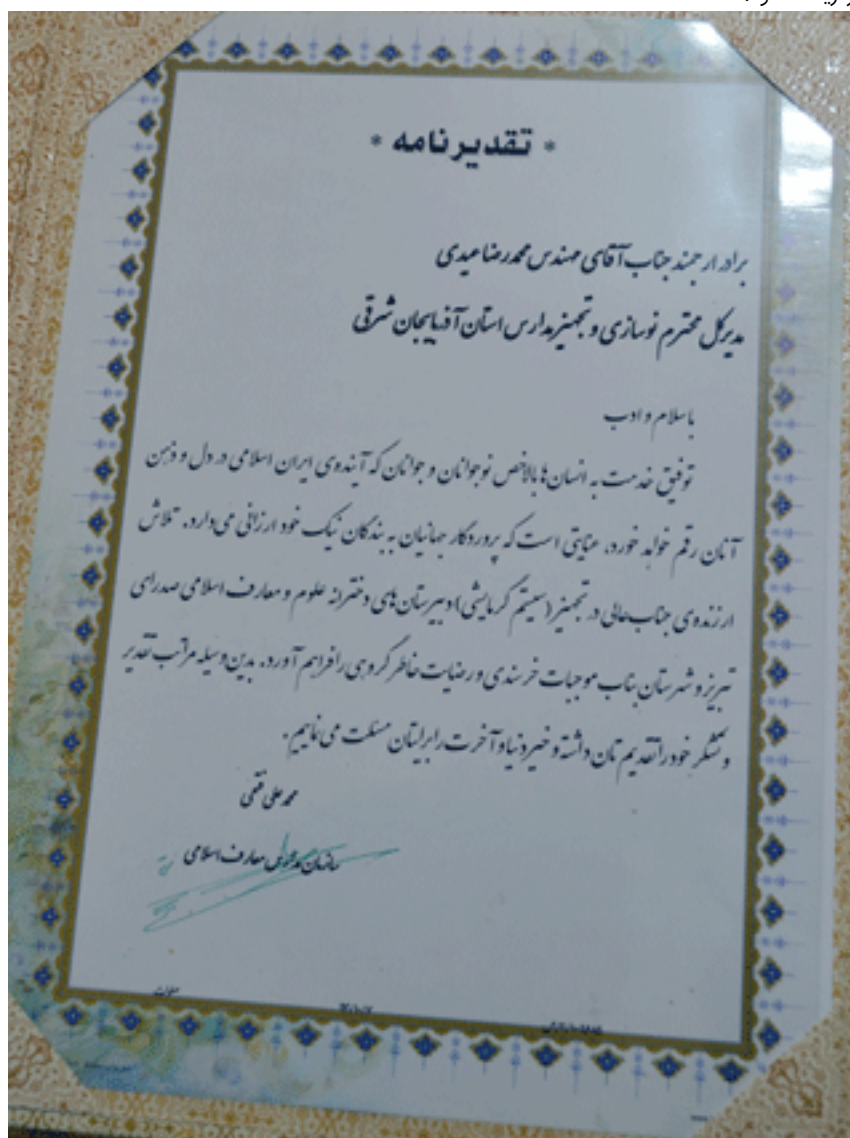 * تقدیرنامه *
برادر ارجمند جناب آقای مهندس محمدرضا عیدی
مدیرکل محترم نوسازی و تجهیز مدارس استان آذربایجان شرقی
باسلام و ادب
توفیق خدمت به انسان‌ها بالاخص نوجوانان و جوانان که آینده‌ی ایران اسلامی در دل و ذهن
آنان رقم خواهد خورد، عنایتی است که پروردگار جهانیان به بندگان نیک خود ارزانی می‌دارد. تلاش
ارزنده‌ی جناب‌عالی در تجهیز (سیستم گرمایشی) دبیرستان‌های دخترانه علوم و معارف اسلامی صدرای
تبریز و شهرستان بناب موجبات خرسندی و رضایت خاطر گروهی را فراهم آورد. بدین وسیله مراتب تقدیر
و تشکر خود را تقدیم‌تان داشته و خیر دنیا و آخرت را برایتان مسئلت می‌نماییم.
محمدعلی
سازمان مدارس معارف اسلامی